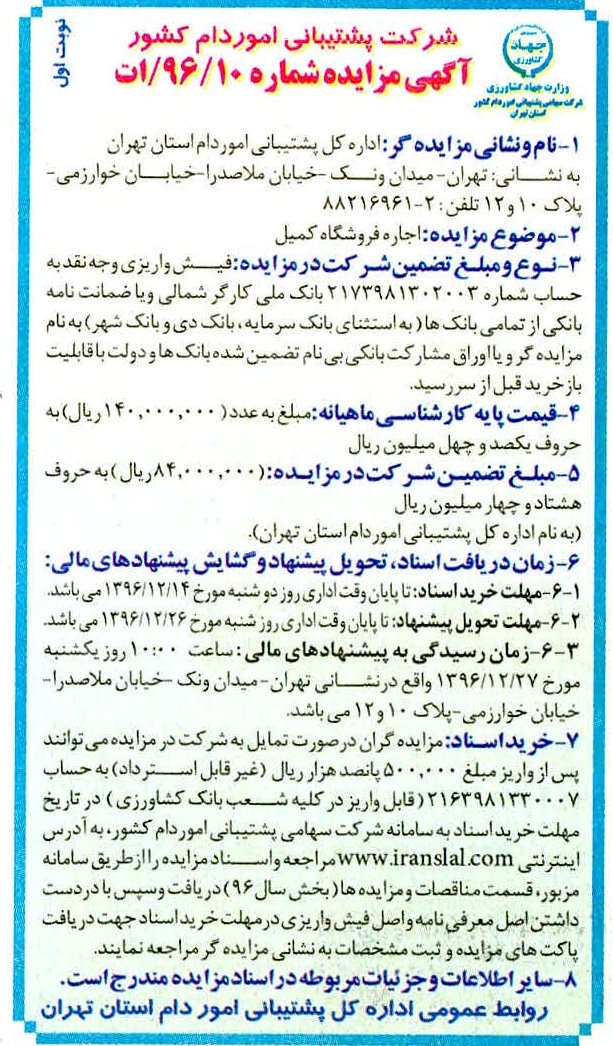 نوبت اول
شرکت پشتیبانی امور دام کشور
آگهی مزایده شماره ۹۶/۱۰/ات
جهاد
کشاورزی
وزارت جهاد کشاورزی
شرکت سهامی پشتیبانی امور دام کشور
استان تهران
۱-نام و نشانی مزایده گر: اداره کل پشتیبانی امور دام استان تهران
به نشانی: تهران-میدان ونک-خیابان ملاصدرا-خیابان خوارزمی-
پلاک ۱۰ و ۱۲ تلفن: ۲-۸۸۲۱۶۹۶۱
۲-موضوع مزایده: اجاره فروشگاه کمیل
۳-نوع و مبلغ تضمین شرکت در مزایده: فیش واریزی وجه نقد به
حساب شماره ۲۱۷۳۹۸۱۳۰۲۰۰۳ بانک ملی کارگر شمالی و یا ضمانت نامه
بانکی از تمامی بانک ها (به استثنای بانک سرمایه، بانک دی و بانک شهر) به نام
مزایده گر و یا اوراق مشارکت بانکی بی نام تضمین شده بانک ها و دولت با قابلیت
بازخرید قبل از سررسید.
۴-قیمت پایه کارشناسی ماهیانه: مبلغ به عدد (۱۴۰,۰۰۰,۰۰۰ ریال) به
حروف یکصد و چهل میلیون ریال
۵-مبلغ تضمین شرکت در مزایده: (۸۴,۰۰۰,۰۰۰ ریال) به حروف
هشتاد و چهار میلیون ریال
(به نام اداره کل پشتیبانی امور دام استان تهران).
۶-زمان دریافت اسناد، تحویل پیشنهاد و گشایش پیشنهادهای مالی:
۶-۱-مهلت خرید اسناد: تا پایان وقت اداری روز دو شنبه مورخ ۱۳۹۶/۱۲/۱۴ می باشد.
۶-۲-مهلت تحویل پیشنهاد: تا پایان وقت اداری روز شنبه مورخ ۱۳۹۶/۱۲/۲۶ می باشد.
۶-۳-زمان رسیدگی به پیشنهادهای مالی: ساعت ۱۰:۰۰ روز یکشنبه
مورخ ۱۳۹۶/۱۲/۲۷ واقع در نشانی تهران-میدان ونک-خیابان ملاصدرا-
خیابان خوارزمی-پلاک ۱۰ و ۱۲ می باشد.
۷-خرید اسناد: مزایده گران در صورت تمایل به شرکت در مزایده می توانند
پس از واریز مبلغ ۵۰۰,۰۰۰ پانصد هزار ریال (غیر قابل استرداد) به حساب
۲۱۶۳۹۸۱۳۳۰۰۰۷ (قابل واریز در کلیه شعب بانک کشاورزی) در تاریخ
مهلت خرید اسناد به سامانه شرکت سهامی پشتیبانی امور دام کشور، به آدرس
اینترنتی www.iranslal.com مراجعه و اسناد مزایده را از طریق سامانه
مزبور، قسمت مناقصات و مزایده ها (بخش سال ۹۶) دریافت و سپس با در دست
داشتن اصل معرفی نامه و اصل فیش واریزی در مهلت خرید اسناد جهت دریافت
پاکت های مزایده و ثبت مشخصات به نشانی مزایده گر مراجعه نمایند.
۸-سایر اطلاعات و جزئیات مربوطه در اسناد مزایده مندرج است.
روابط عمومی اداره کل پشتیبانی امور دام استان تهران